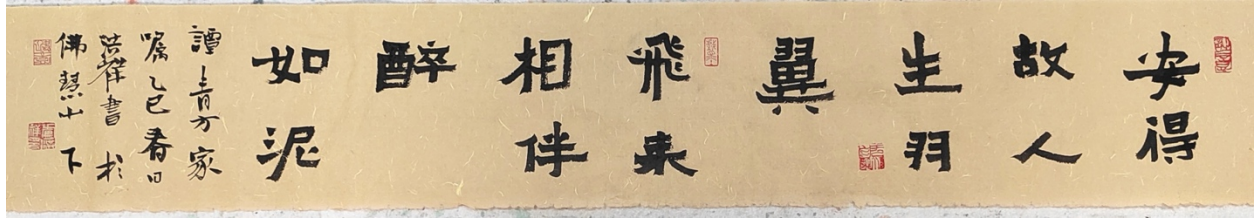 安得
故人
生羽
翼
飛來
相伴
醉
如泥
譚青方家
嘱乙巳春日
洪祥書於
佛慧山下